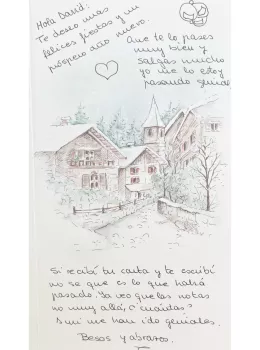 Hola David:
Te deseo unas
felices fiestas y un
próspero año nuevo.
Que te lo pases
muy bien y
salgas mucho
yo me lo estoy
pasando genial
Si recibí tu carta y te escribí
no se que es lo que habrá
pasado. Ya veo que las notas
no muy allá, ¿cuántas?
A mi me han ido geniales.
Besos y abrazos.